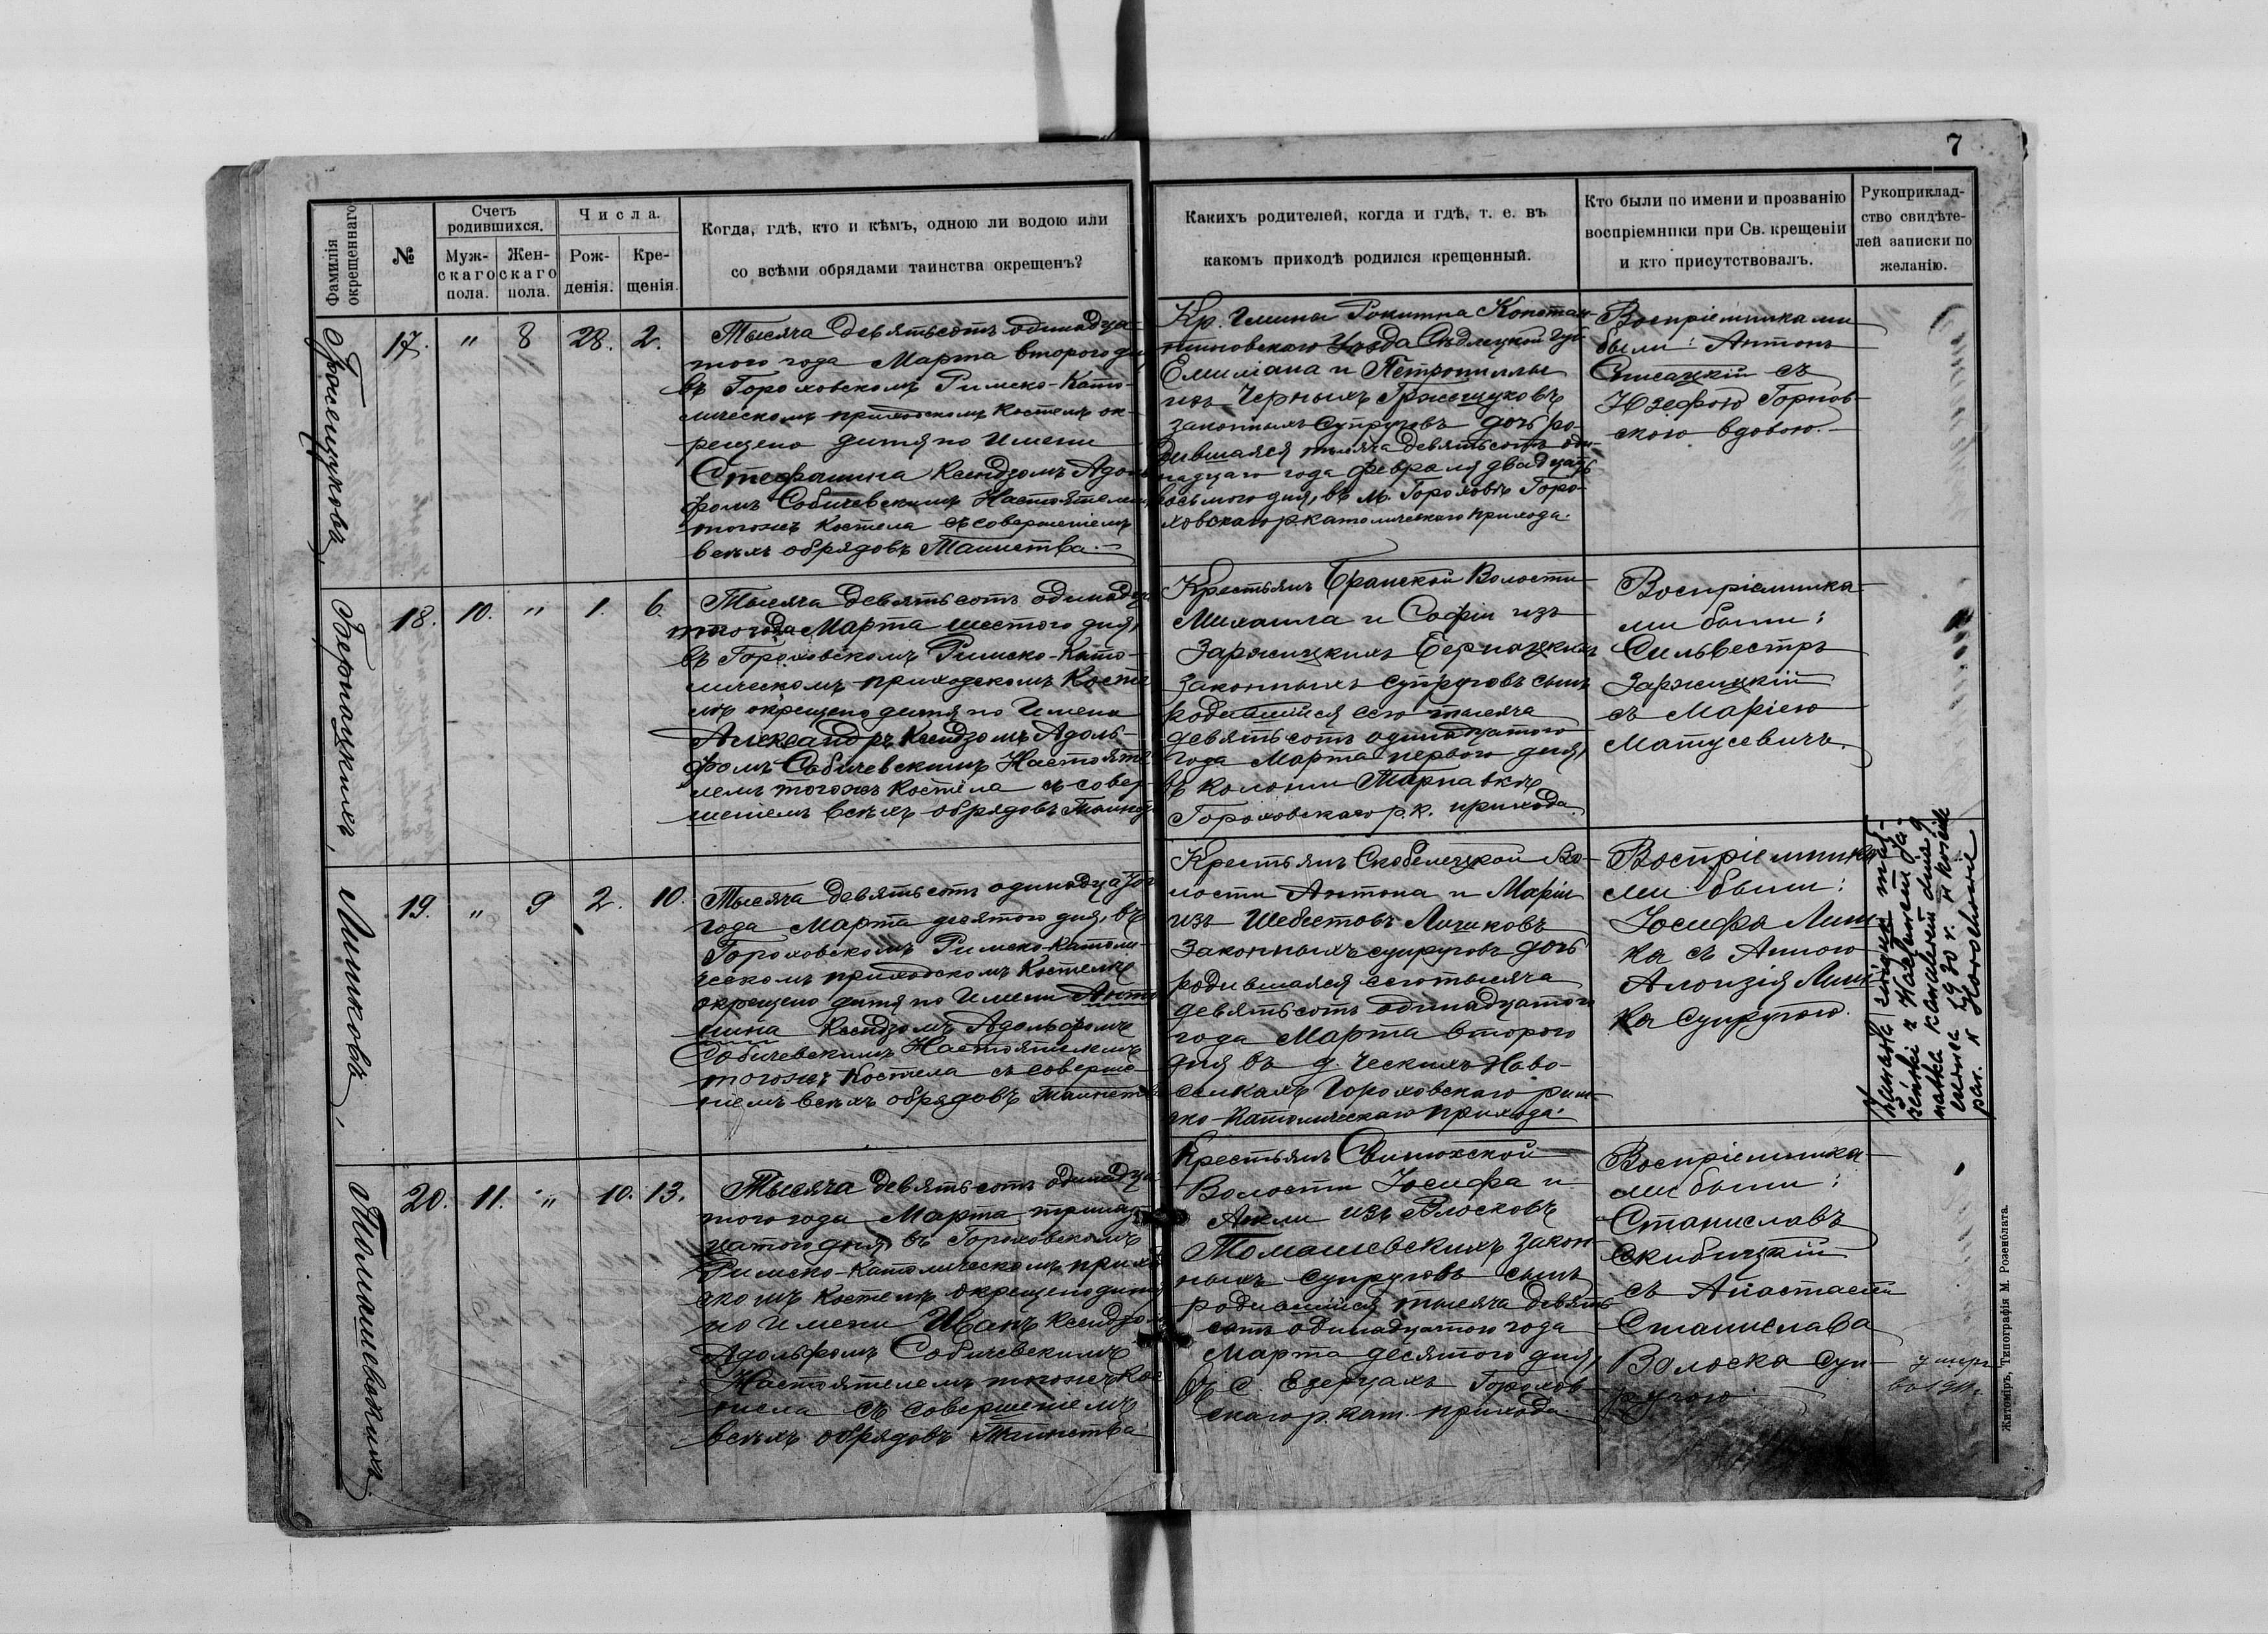 7
Фамилія окрещеннаго
№
Счетъ родившихся.
Мужскаго пола.
Женскаго пола.
Числа.
Рожденія.
Крещенія.
Когда, гдѣ, кто и кѣмъ, одною ли водою или
со всѣми обрядами таинства окрещенъ?
Какихъ родителей, когда и гдѣ, т. е. въ
какомъ приходѣ родился крещенный.
Кто были по имени и прозванію
воспріемники при Св. крещеніи
и кто присутствовалъ.
Рукоприклад-
ство свидѣте-
лей записки по
желанію.
17. " 8 28. 2.
Тысяча девятьсотъ одинадца-
таго года Марта второго дня
въ Гороховскомъ Римско-Като-
лическомъ приходскомъ Костелѣ ок-
рещено дитя по Имени
Стефанина Ксендзомъ Адоль
фомъ Собичевскимъ Настоятелемъ
тогожъ костела съ совершеніемъ
всѣхъ обрядовъ Таинства.—
Кр. Гмины Рокитна Констан-
тиновскаго Уѣзда Сѣдлецкой Губ
и Петрониллы
изъ Черныхъ
законныхъ супруговъ дочь ро-
дившаяся тысяча девятьсотъ оди-
надцаго года февраля двадцать
восьмого дня, въ м. Гороховѣ Горо-
ховскаго р католическаго прихода.
Воспріемниками
были: Антонъ
съ
Юзефою Горнов-
скою вдовою.—
18. 10. " 1. 6.
Тысяча девятьсотъ одинадца
таго года Марта шестого дня,
въ Гороховскомъ Римско-Като-
лическомъ приходскомъ Косте
лѣ окрещено дитя по Имени
Александръ Ксендзомъ Адоль-
фомъ Собичевскимъ Настояте-
лемъ тогожъ костела съ совер-
шеніемъ всѣхъ обрядовъ Таинст
Крестьянъ Бранской Волости
Михаила и Софіи изъ
Заржицкихъ Бернацкихъ
законныхъ супруговъ сынъ
родившійся сего тысяча
девятьсотъ одинадцатого
года Марта первого дня,
въ колоніи Тарнавкѣ
Гороховскаго р. к. прихода.
Воспріемника-
ми были:
Сильвестръ
Заржицкій
съ Маріею
Матусевичъ.
19. " 9 2. 10.
Тысяча девятьсотъ одинадцатого
года Марта десятого дня, въ
Гороховскомъ Римско-католи-
ческомъ приходскомъ Костелѣ
окрещено дитя по Имени Анто
нина Ксендзомъ Адольфомъ
Собичевскимъ Настоятелемъ
тогожъ Костела съ соверше-
ніемъ всѣхъ обрядовъ Таинства
Крестьянъ Скобелецкой Во-
лости Антона и Маріи
изъ Шебестовъ
законныхъ супруговъ дочь
родившаяся сего тысяча
девятьсотъ одинадцатого
года Марта второго
дня въ д. Ческихъ Ново-
селкахъ Гороховскаго рим-
ско-католическаго прихода.
Воспріемника
ми были:
Іосифъ
съ Анною
Алоизія
супругою.
zawarła związek mał-
żeński z
9
1930 r. w kościele
par. w
20. 11. " 10. 13.
Тысяча девятьсотъ одинадца-
таго года Марта тринад-
цатого дня, въ Гороховскомъ
Римско-католическомъ приход
скомъ костелѣ окрещено дитя
по Имени Иванъ Ксендзомъ
Адольфомъ Собичевскимъ
Настоятелемъ тогожъ Кос
тела съ совершеніемъ
всѣхъ обрядовъ Таинства
Томашевскихъ
Крестьянъ Свинюхской
Волости Іосифа и
изъ
Томашевскихъ закон
ныхъ супруговъ сынъ
родившійся тысяча девять
сотъ одинадцатого года
Марта десятого дня,
въ с. Езерцахъ Горохов-
скаго р. кат. прихода
Воспріемника-
ми были:
Станиславъ
съ
Станислава
Волоска Суп-
ругою
умеръ
Житоміръ, Типографія М. Розенблата.